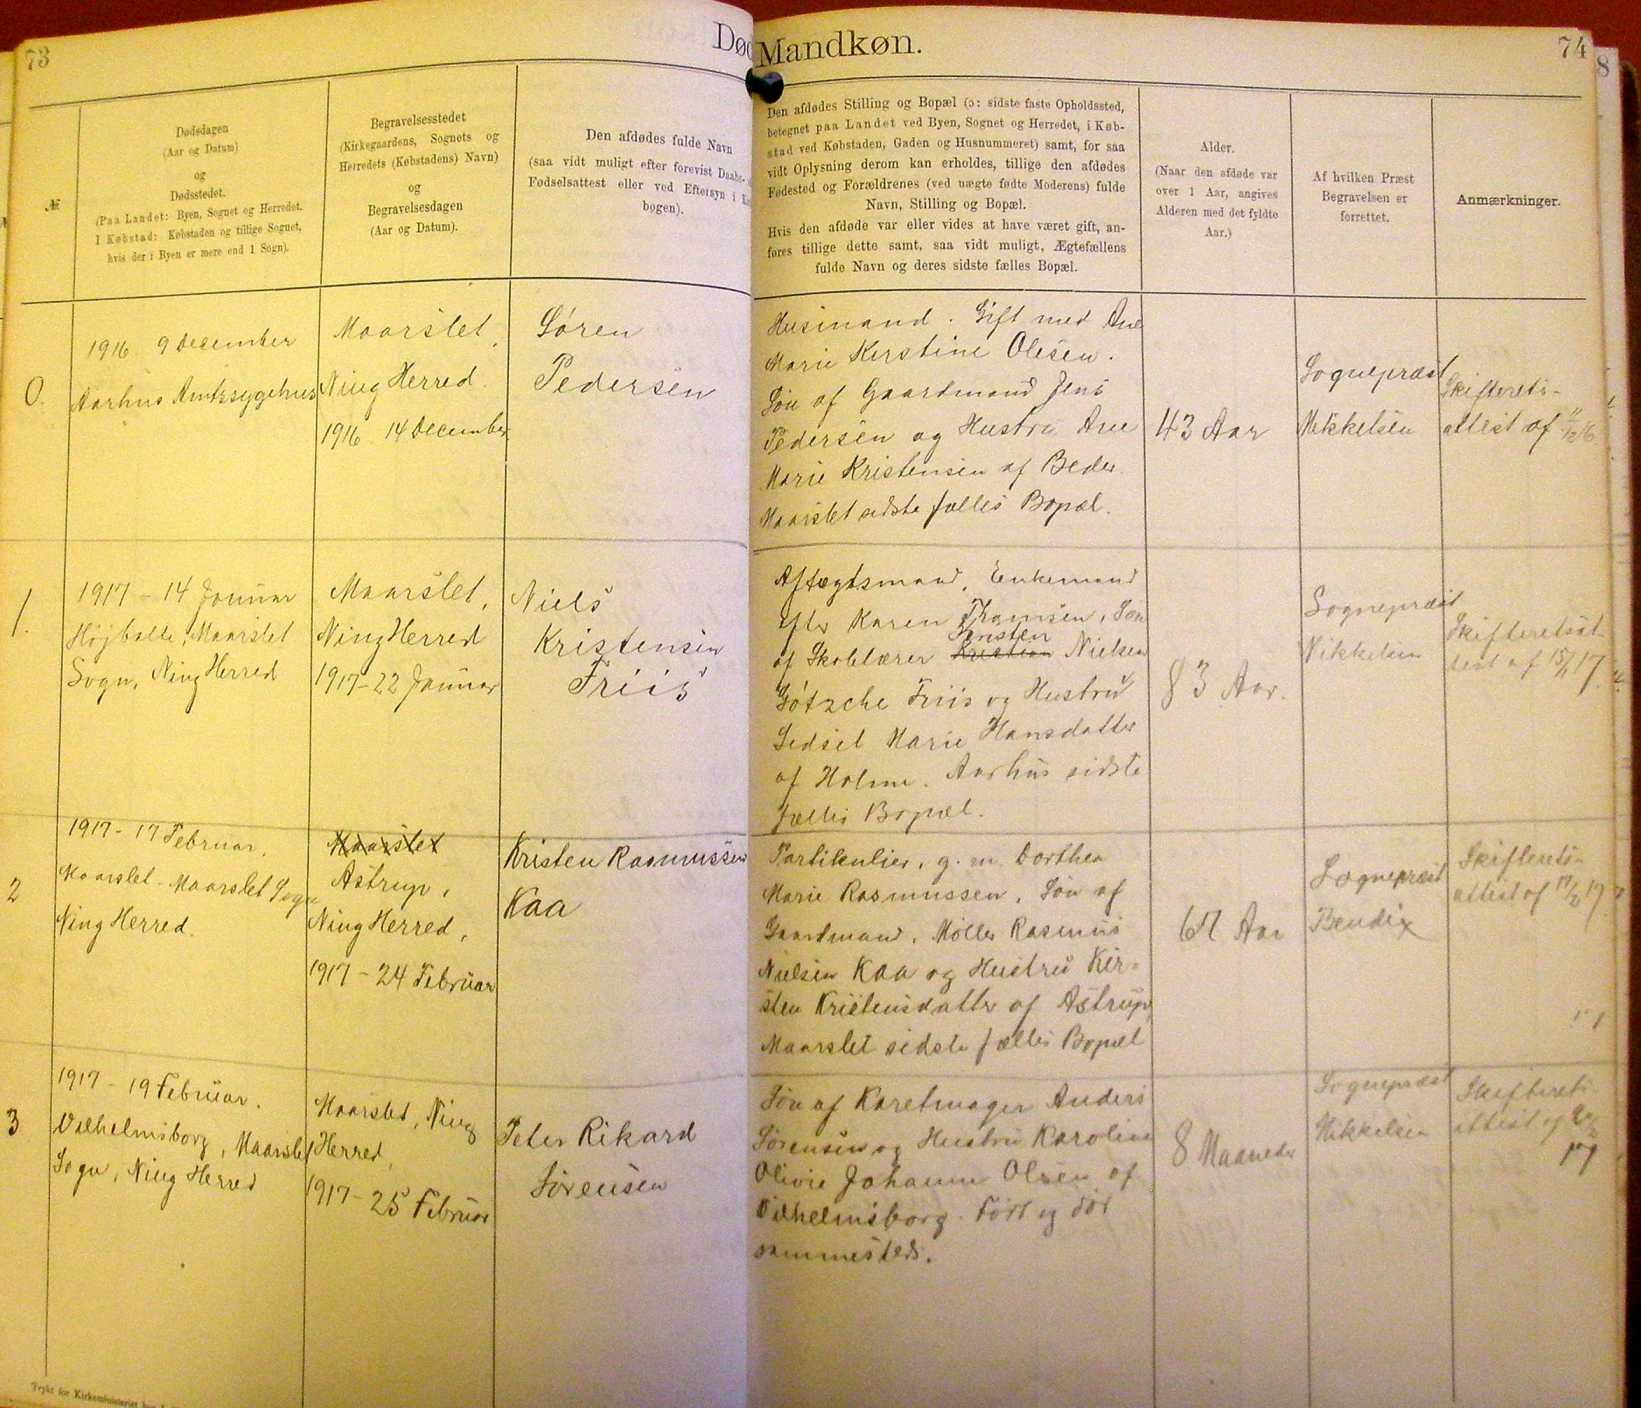 73
Død
Mandkøn.
74
8
№
Dødsdagen
(Aar og Datum)
og
Dødsstedet.
(Paa Landet: Byen, Sognet og Herredet.
I Købstad: Købstaden og tillige Sognet,
hvis der i Byen er mere end 1 Sogn).
Begravelsesstedet
(Kirkegaardens, Sognets og
Herredets (Købstadens) Navn)
og
Begravelsesdagen
(Aar og Datum).
Den afdødes fulde Navn
(saa vidt muligt efter forevist Daabs-
Fødselsattest eller ved Eftersyn i
bogen).
Den afdødes Stilling og Bopæl (ɔ: sidste faste Opholdssted,
betegnet paa Landet ved Byen, Sognet og Herredet, i Køb-
stad ved Købstaden, Gaden og Husnummeret) samt, for saa
vidt Oplysning derom kan erholdes, tillige den afdødes
Fødested og Forældrenes (ved uægte fødte Moderens) fulde
Navn, Stilling og Bopæl.
Hvis den afdøde var eller vides at have været gift, an-
føres tillige dette samt, saa vidt muligt, Ægtefællens
fulde Navn og deres sidste fælles Bopæl.
Alder.
(Naar den afdøde var
over 1 Aar, angives
Alderen med det fyldte
Aar.)
Af hvilken Præst
Begravelsen er
forrettet.
Anmærkninger.
0.
1916 9 December
Aarhus Amtssygehus
Maarslet,
Ning Herred.
1916 14 December
Søren
Pedersen
Husmand. Gift med Ane
Marie Kirstine Olesen.
Søn af Gaardmand Jens
Pedersen og Hustru Ane
Marie Kristensen af Beder.
Maarslet sidste fælles Bopæl.
43 Aar
Sognepræst
Mikkelsen
Skifterets-
attest af 11/12 16
1.
1917 - 14 Januar
Højballe, Maarslet
Sogn, Ning Herred
Maarslet,
Ning Herred
1917 - 22 Januar
Niels
Kristensen
Friis
Aftægtsmand, Enkemand
efter Karen Thomsen, Søn
Kristen
af Skolelærer Kristian Nielsen
Gótzche Friis og Hustru
Sidsel Marie Hansdatter
af Holme. Aarhus sidste
fælles Bopæl.
83 Aar.
Sognepræst
Mikkelsen
Skifteretsat-
test af 15/1 17.
2
1917 - 17 Februar.
Maarslet - Maarslet Sogn
Ning Herred.
Maarslet
Astrup,
Ning Herred,
1917 - 24 Februar
Kristen Rasmussen
Kaa
Partikulier, g. m. Dorthea
Marie Rasmussen, Søn af
Gaardmand, Møller Rasmus
Nielsen Kaa og Hustru Kir-
sten Kristensdatter af Astrup
Maarslet sidste fælles Bopæl
67 Aar
Sognepræst
Bendix
Skifterets-
attest af 19/2 17
3
1917 - 19 Februar.
Vilhelmsborg, Maarslet
Sogn, Ning Herred
Maarslet, Ning
Herred,
1917 - 25 Februar
Peter Rikard
Sørensen
Søn af Karetmager Anders
Sørensen og Hustru Karoline
Olivie Johanne Olsen af
Vilhelmsborg. Født og død
sammesteds.
8 Maaneder
Sognepræst
Mikkelsen
Skifterets-
attest af
17
Trykt for Kirkeministeriet hos